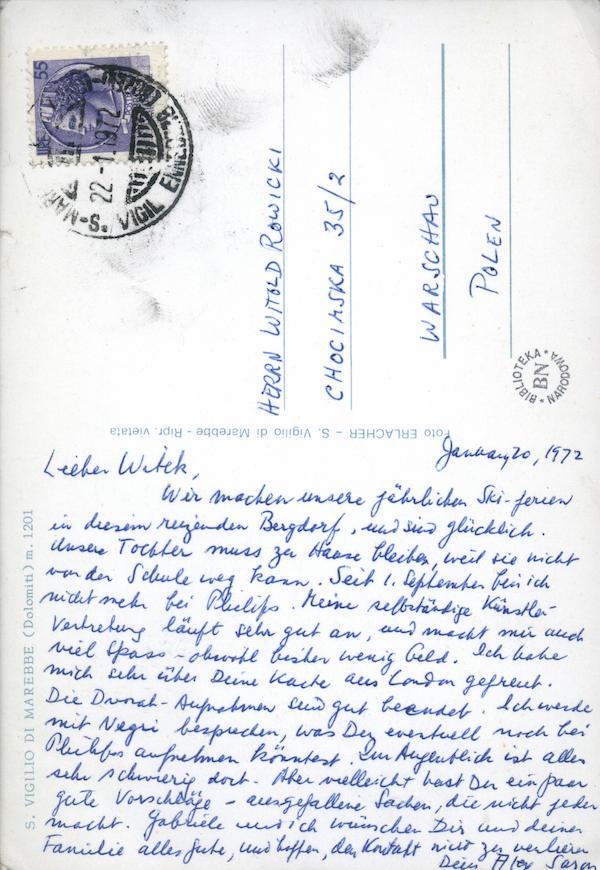 55
LIRE
22 -1. 1972
S. VIGIL ENNEB
HERRN WITOLD ROWICKI
CHOCIMSKA 35/2
WARSCHAU
POLEN
BIBLIOTEKA NARODOWA
BN
Foto ERLACHER – S. Vigilio di Marebbe - Ripr. vietata
S. VIGILIO DI MAREBBE (Dolomiti) m. 1201
January 20, 1972
Lieber Witek,
Wir machen unsere jährlichen Ski-ferien
in diesem reizenden Bergdorf, und sind glücklich.
Unsere Tochter muss zu Hause bleiben, weil sie nicht
von der Schule weg kann. Seit 1. September bin ich
nicht mehr bei Philips. Meine selbständige Künstler-
Vertretung läuft sehr gut an, und macht mir auch
viel Spass - obwohl bisher wenig Geld. Ich habe
mich sehr über Deine Karte aus London gefreut.
Die Dvorak-Aufnahmen sind gut beendet. Ich werde
mit Negri besprechen, was Du eventuell noch bei
Philips aufnehmen könntest. Im Augenblick ist alles
sehr schwierig dort. Aber vielleicht hast Du ein paar
gute Vorschläge - ausgefallene Sachen, die nicht jeder
macht. Gabriele und ich wünschen Dir und deiner
Familie alles Gute, und hoffen, den Kontakt nicht zu verlieren
Dein Alex Saron